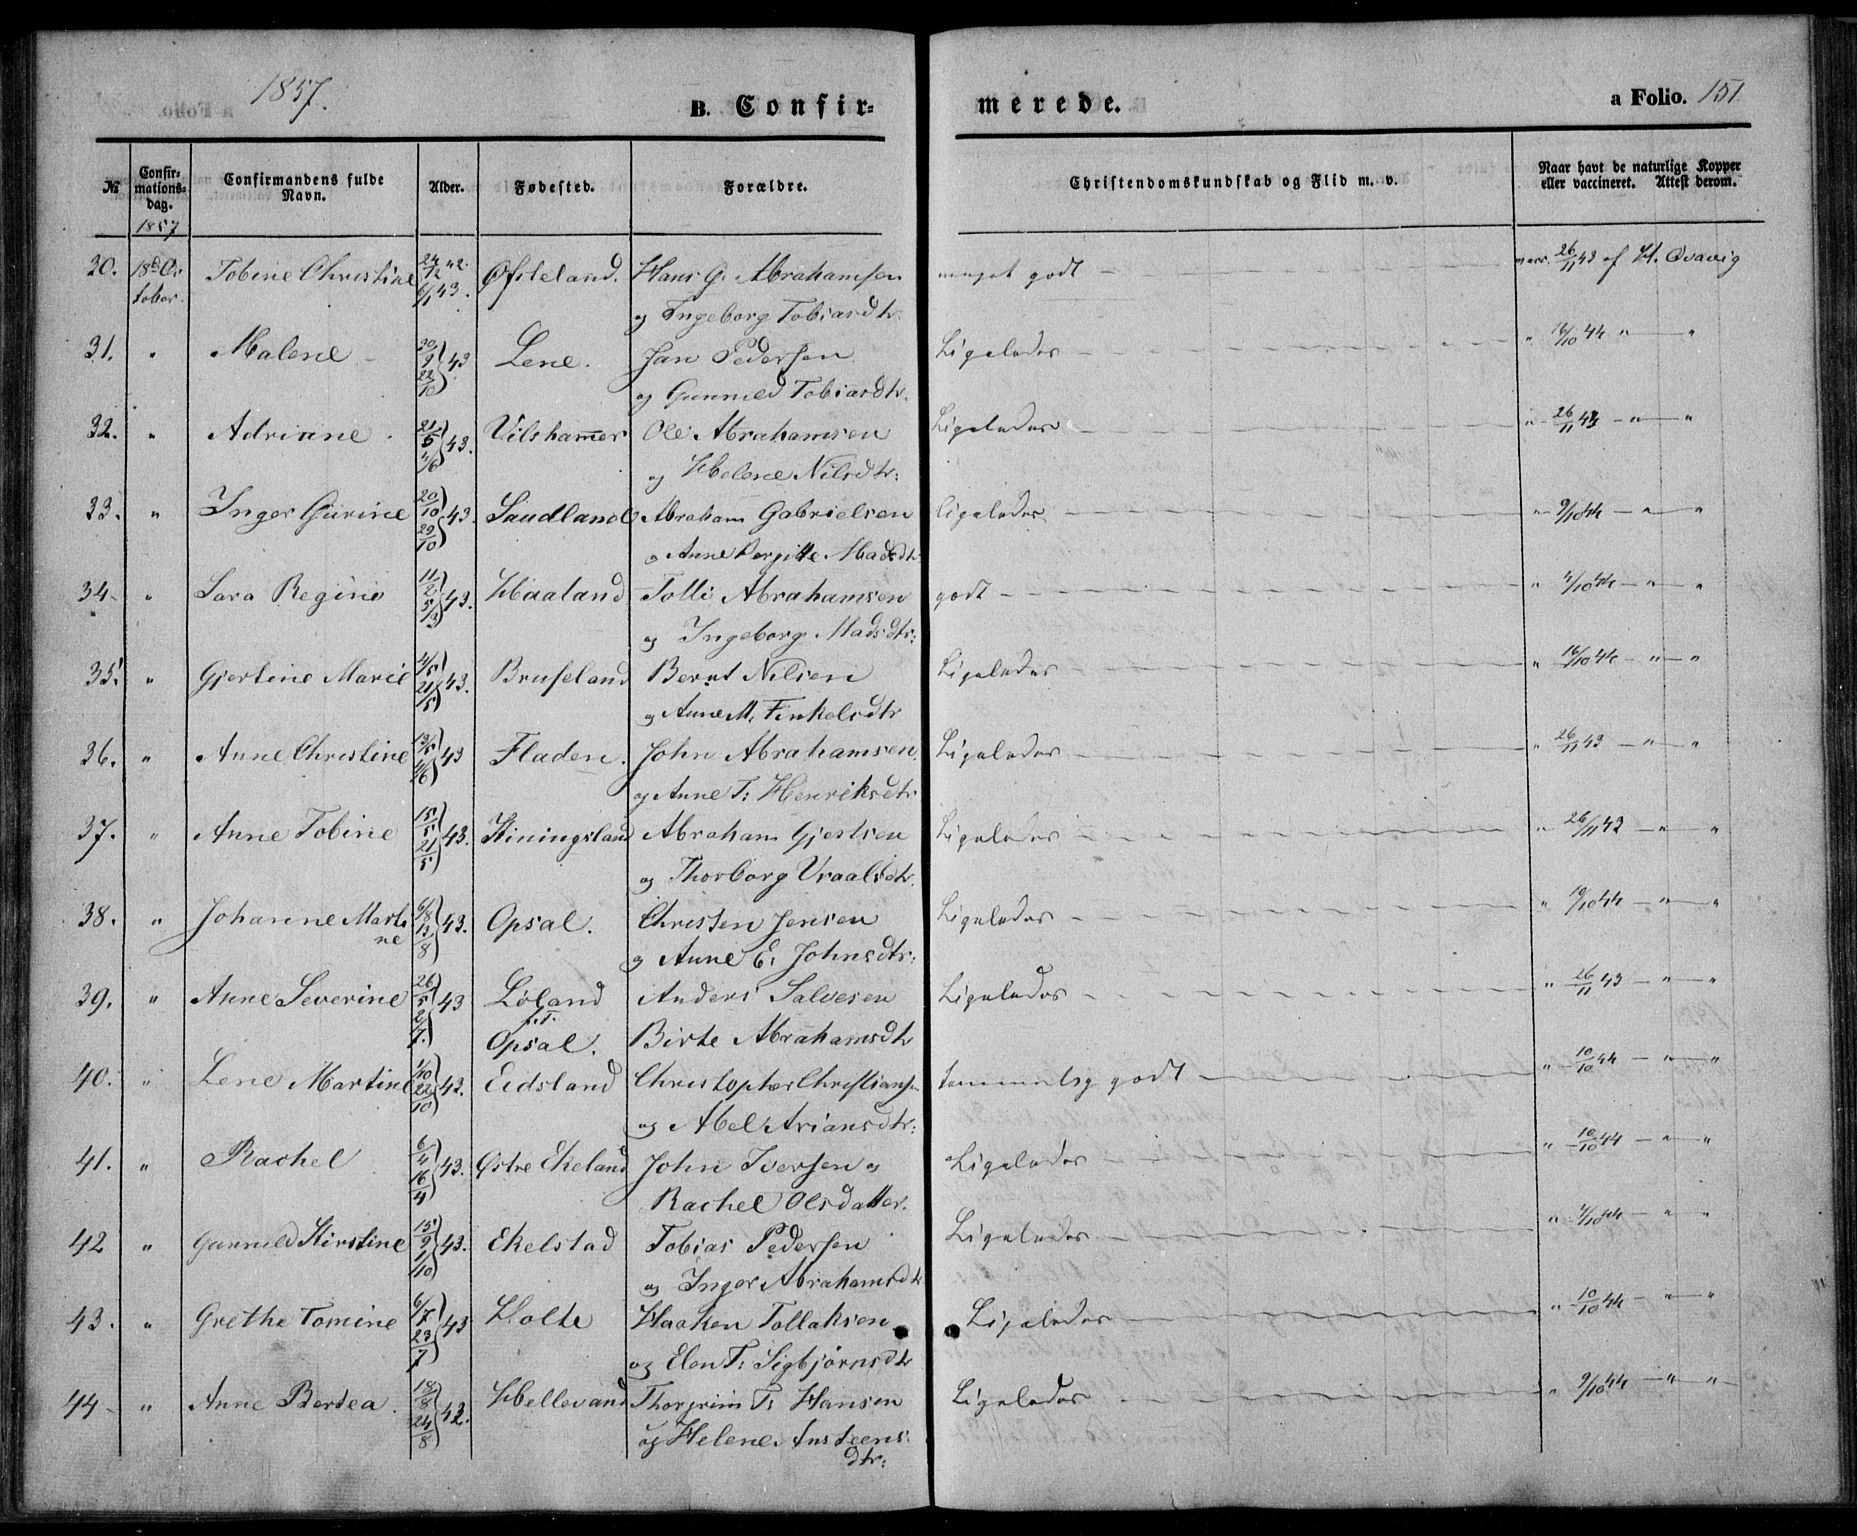 1857.
B. Confir-
merede.
a Folio. 151
№
Confir-
mations-
dag.
1857
Confirmandens fulde
Navn.
Alder.
Fødested.
Forældre.
Christendomskundskab og Flid m. v.
Naar havt de naturlige Kopper
eller vaccineret. Attest derom.
30. 18d Oc Tobine Christine 24/12 42 Øfsteland. Hans G. Abrahamsen meget godt vacc. 26/11 43 af H. Qvavig
tober. 6/1 43. og Ingeborg Tobiasdtr.
31. " Malene 30/9 43 Lene. Jan Pedersen Ligeledes " 16/10 44 " "
22/10 og Gunnild Tobiasdtr.
32. " Adriane 21/5 43. Vilshammer Ole Abrahamsen Ligeledes " 26/11 43 " "
4/6 og Helene Nilsdtr:
33. " Inger Gurine 20/10 43. Saudland Abraham Gabrielsen ligeledes " 9/10 44 " "
29/10 og Anne Bergitte Madsdtr
34 " Sara Regine 11/2 43. Haaland Tolli Abrahamsen godt " 4/10 44 " "
5/3 og Ingeborg Madsdtr:
35. " Gjertine Marie 4/5 43. Bruseland Bernt Nilsen Ligeledes " 16/10 44 " "
21/5 og Anne M. Finkelsdtr
36. " Anne Christine 13/5 43 Fladen. John Abrahamsen Ligeledes " 26/11 43 " "
4/6 og Anne T: Henriksdtr
37. " Anne Tobine 15/5 43. Kiningsland Abraham Gjertsen Ligeledes " 26/11 43 " "
21/5 og Thorborg Vraalsdtr.
38. " Johanne Marti 6/8 43. Opsal. Christen Jensen Ligeledes " 10/10 44 " "
ne 13/8 og Anne E. Johnsdtr:
39. " Anne Severine 26/5 43 Løland Anders Salvesen Ligeledes " 26/11 43 " "
2/7. f.T.
Opsal. Birte Abrahamsdtr
40. " Lene Martine 4/10 43. Eidsland Christopher Christiansen temmelig godt " 10/10 44 " "
22/10 og Abel Ariansdtr:
41. " Rachel 6/4 43. Østre Ekeland John Iversen og Ligeledes " 10/10 44 " "
16/4 Rachel Olsdatter.
42 " Gunnild Kirstine 15/9 43. Ekelstad Tobias Pedersen Ligeledes " 4/10 44 " "
1/10 og Inger Abrahamsdtr
43. " Grethe Tomine 6/7 43 Holte Haaken Tollaksen Ligeledes " 10/10 44 " "
23/7 og Elen T: Sigbjørnsdtr
44 " Anne Bertea. 18/8 42. Hellevand Thorgrim T: Hansen Ligeledes " 9/10 44 " "
24/8 og Helene Ansteens
dtr: